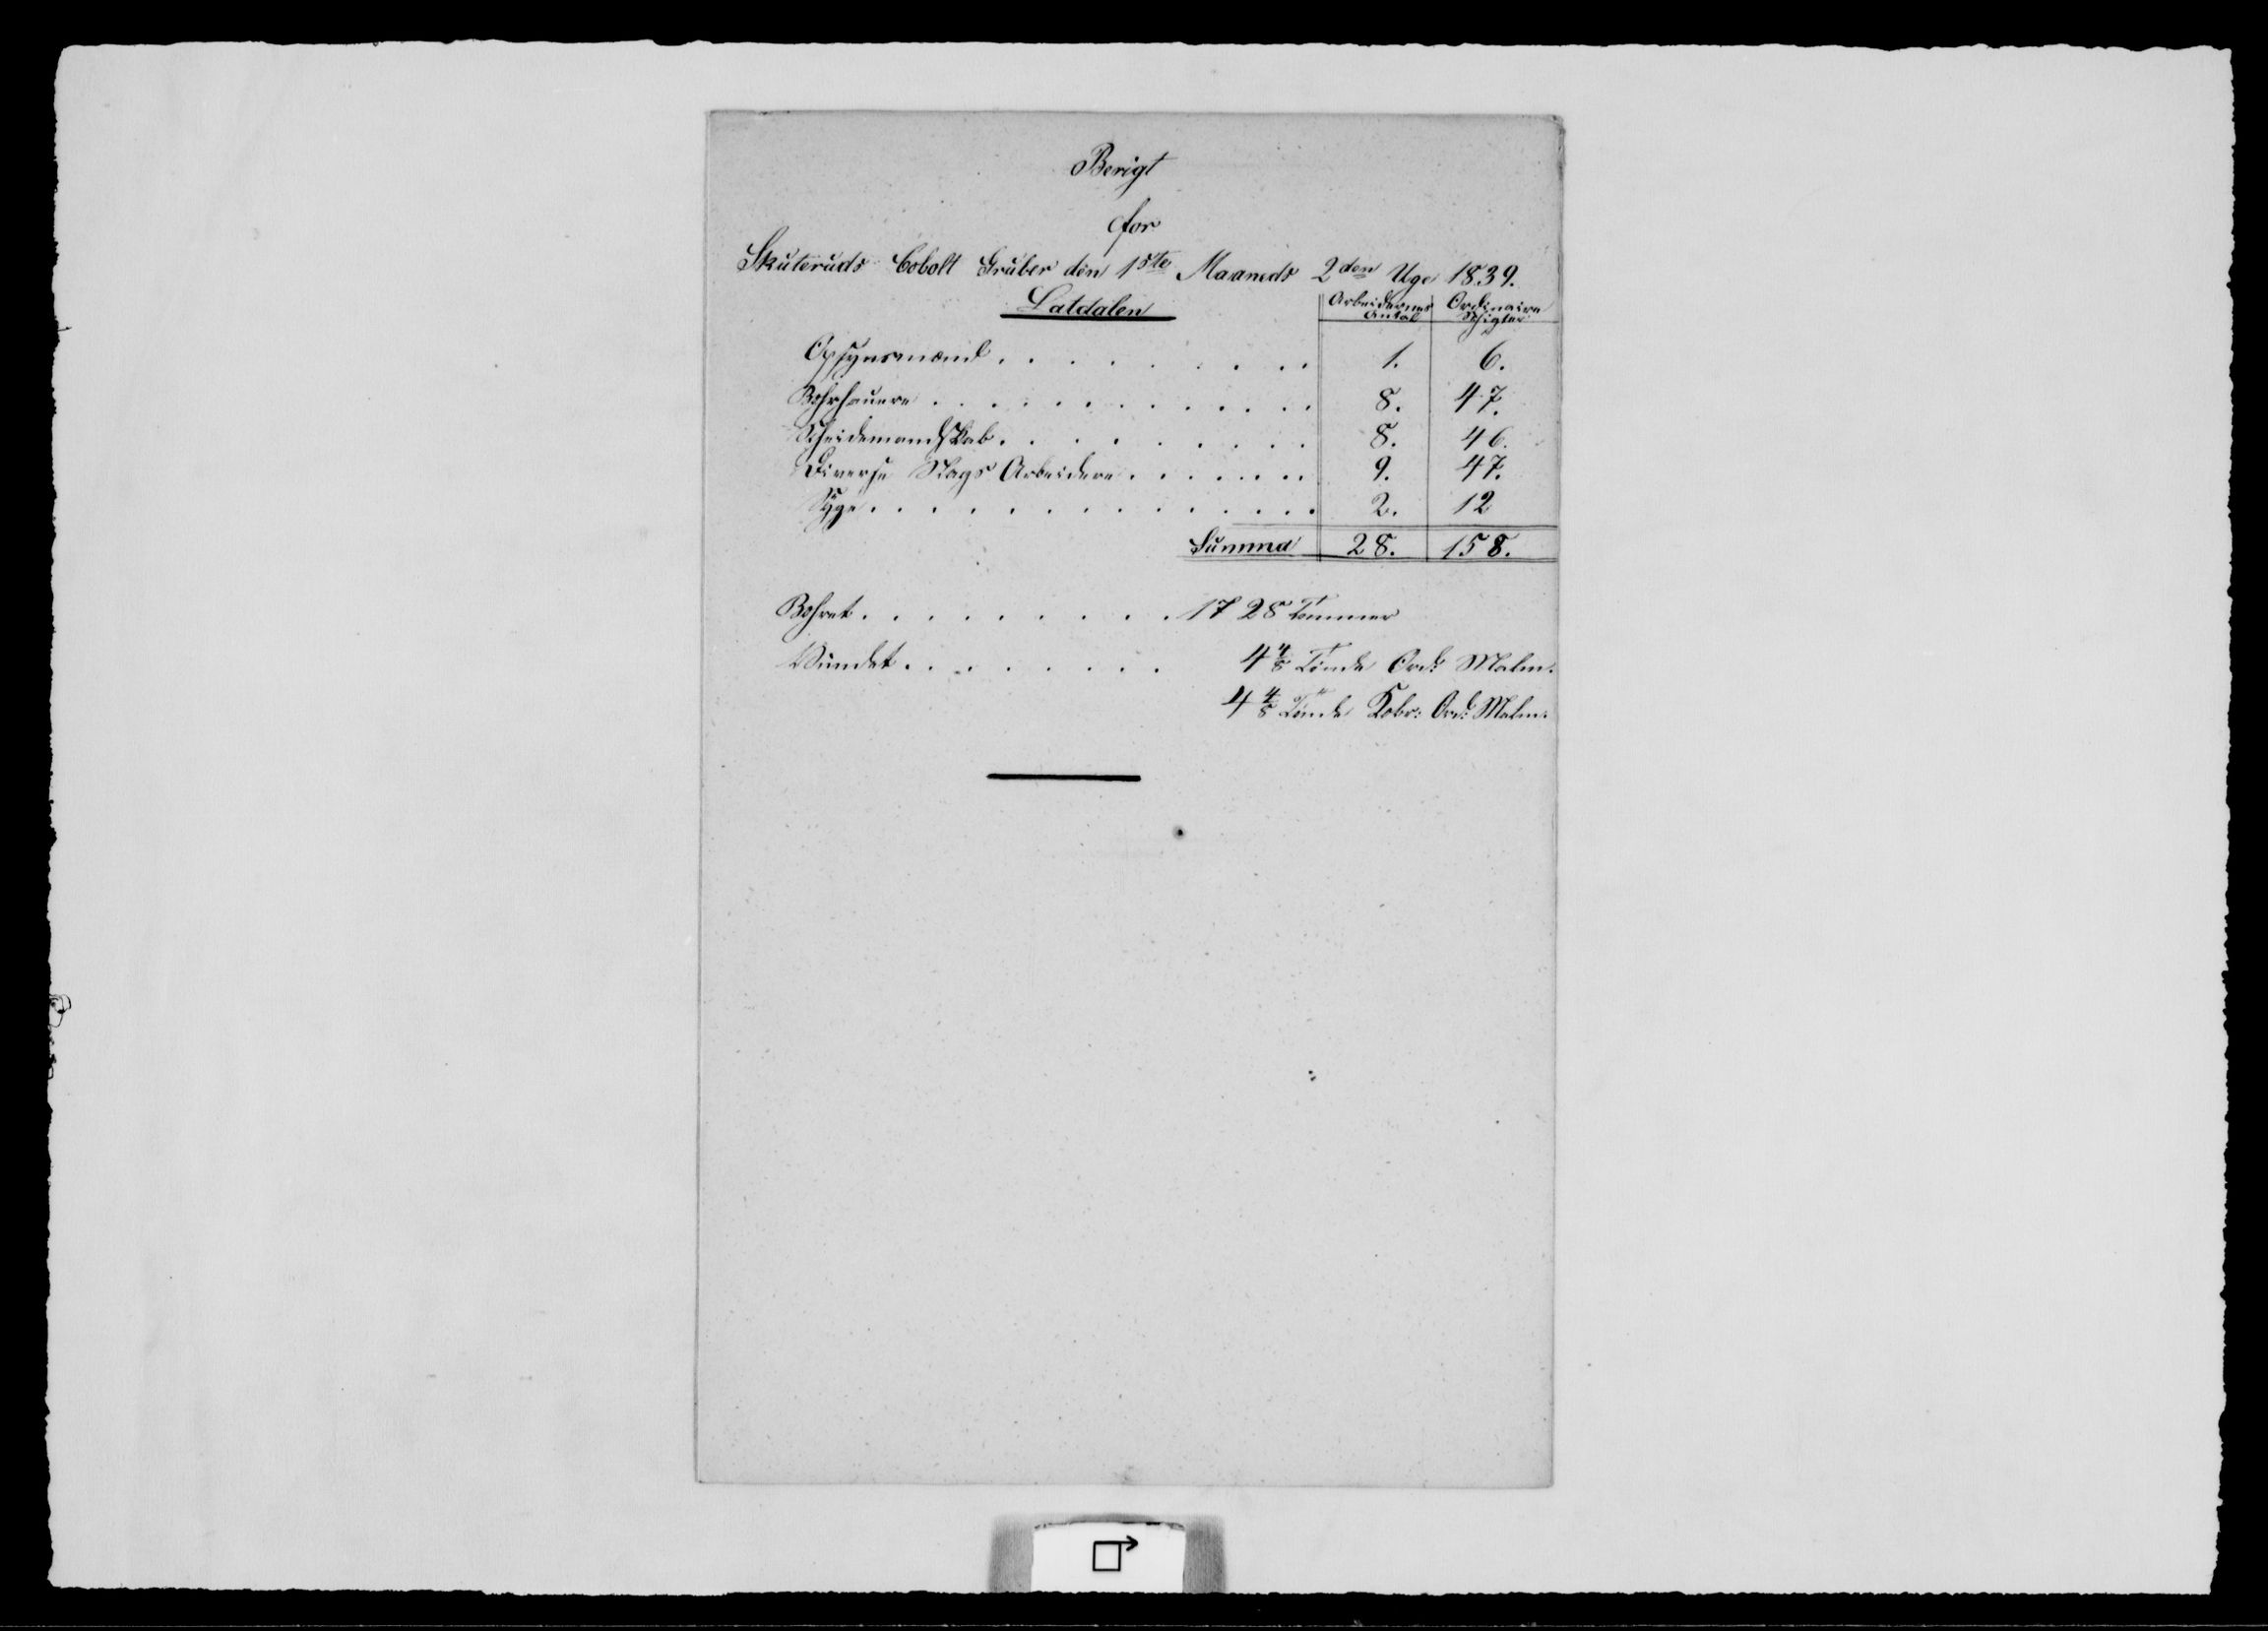 Berigt
for
Skuteruds Cobolt Gruber den 1ste Maaneds 2den Uge 1839.
Latdalen Arbeidernes Antal Ordinaire Schigter
Opsynsmænd . . . . . . . . . 1. 6.
Bohrhauere . . . . . . . . . . . . 8. 47.
Scheidemandskab . . . . . . . . . 8. 46.
Diverse Slags Arbeidere . . . . . . . 9. 47.
Syge . . . . . . . . . . . . . . 2. 12
Summa 28. 158.
Bohret . . . . . . . . . . 1728 Tommer
Vundet . . . . . . . . 4 4/8 Tønde Ord: Malm.
4 4/8 Tønde Ord: Malm.